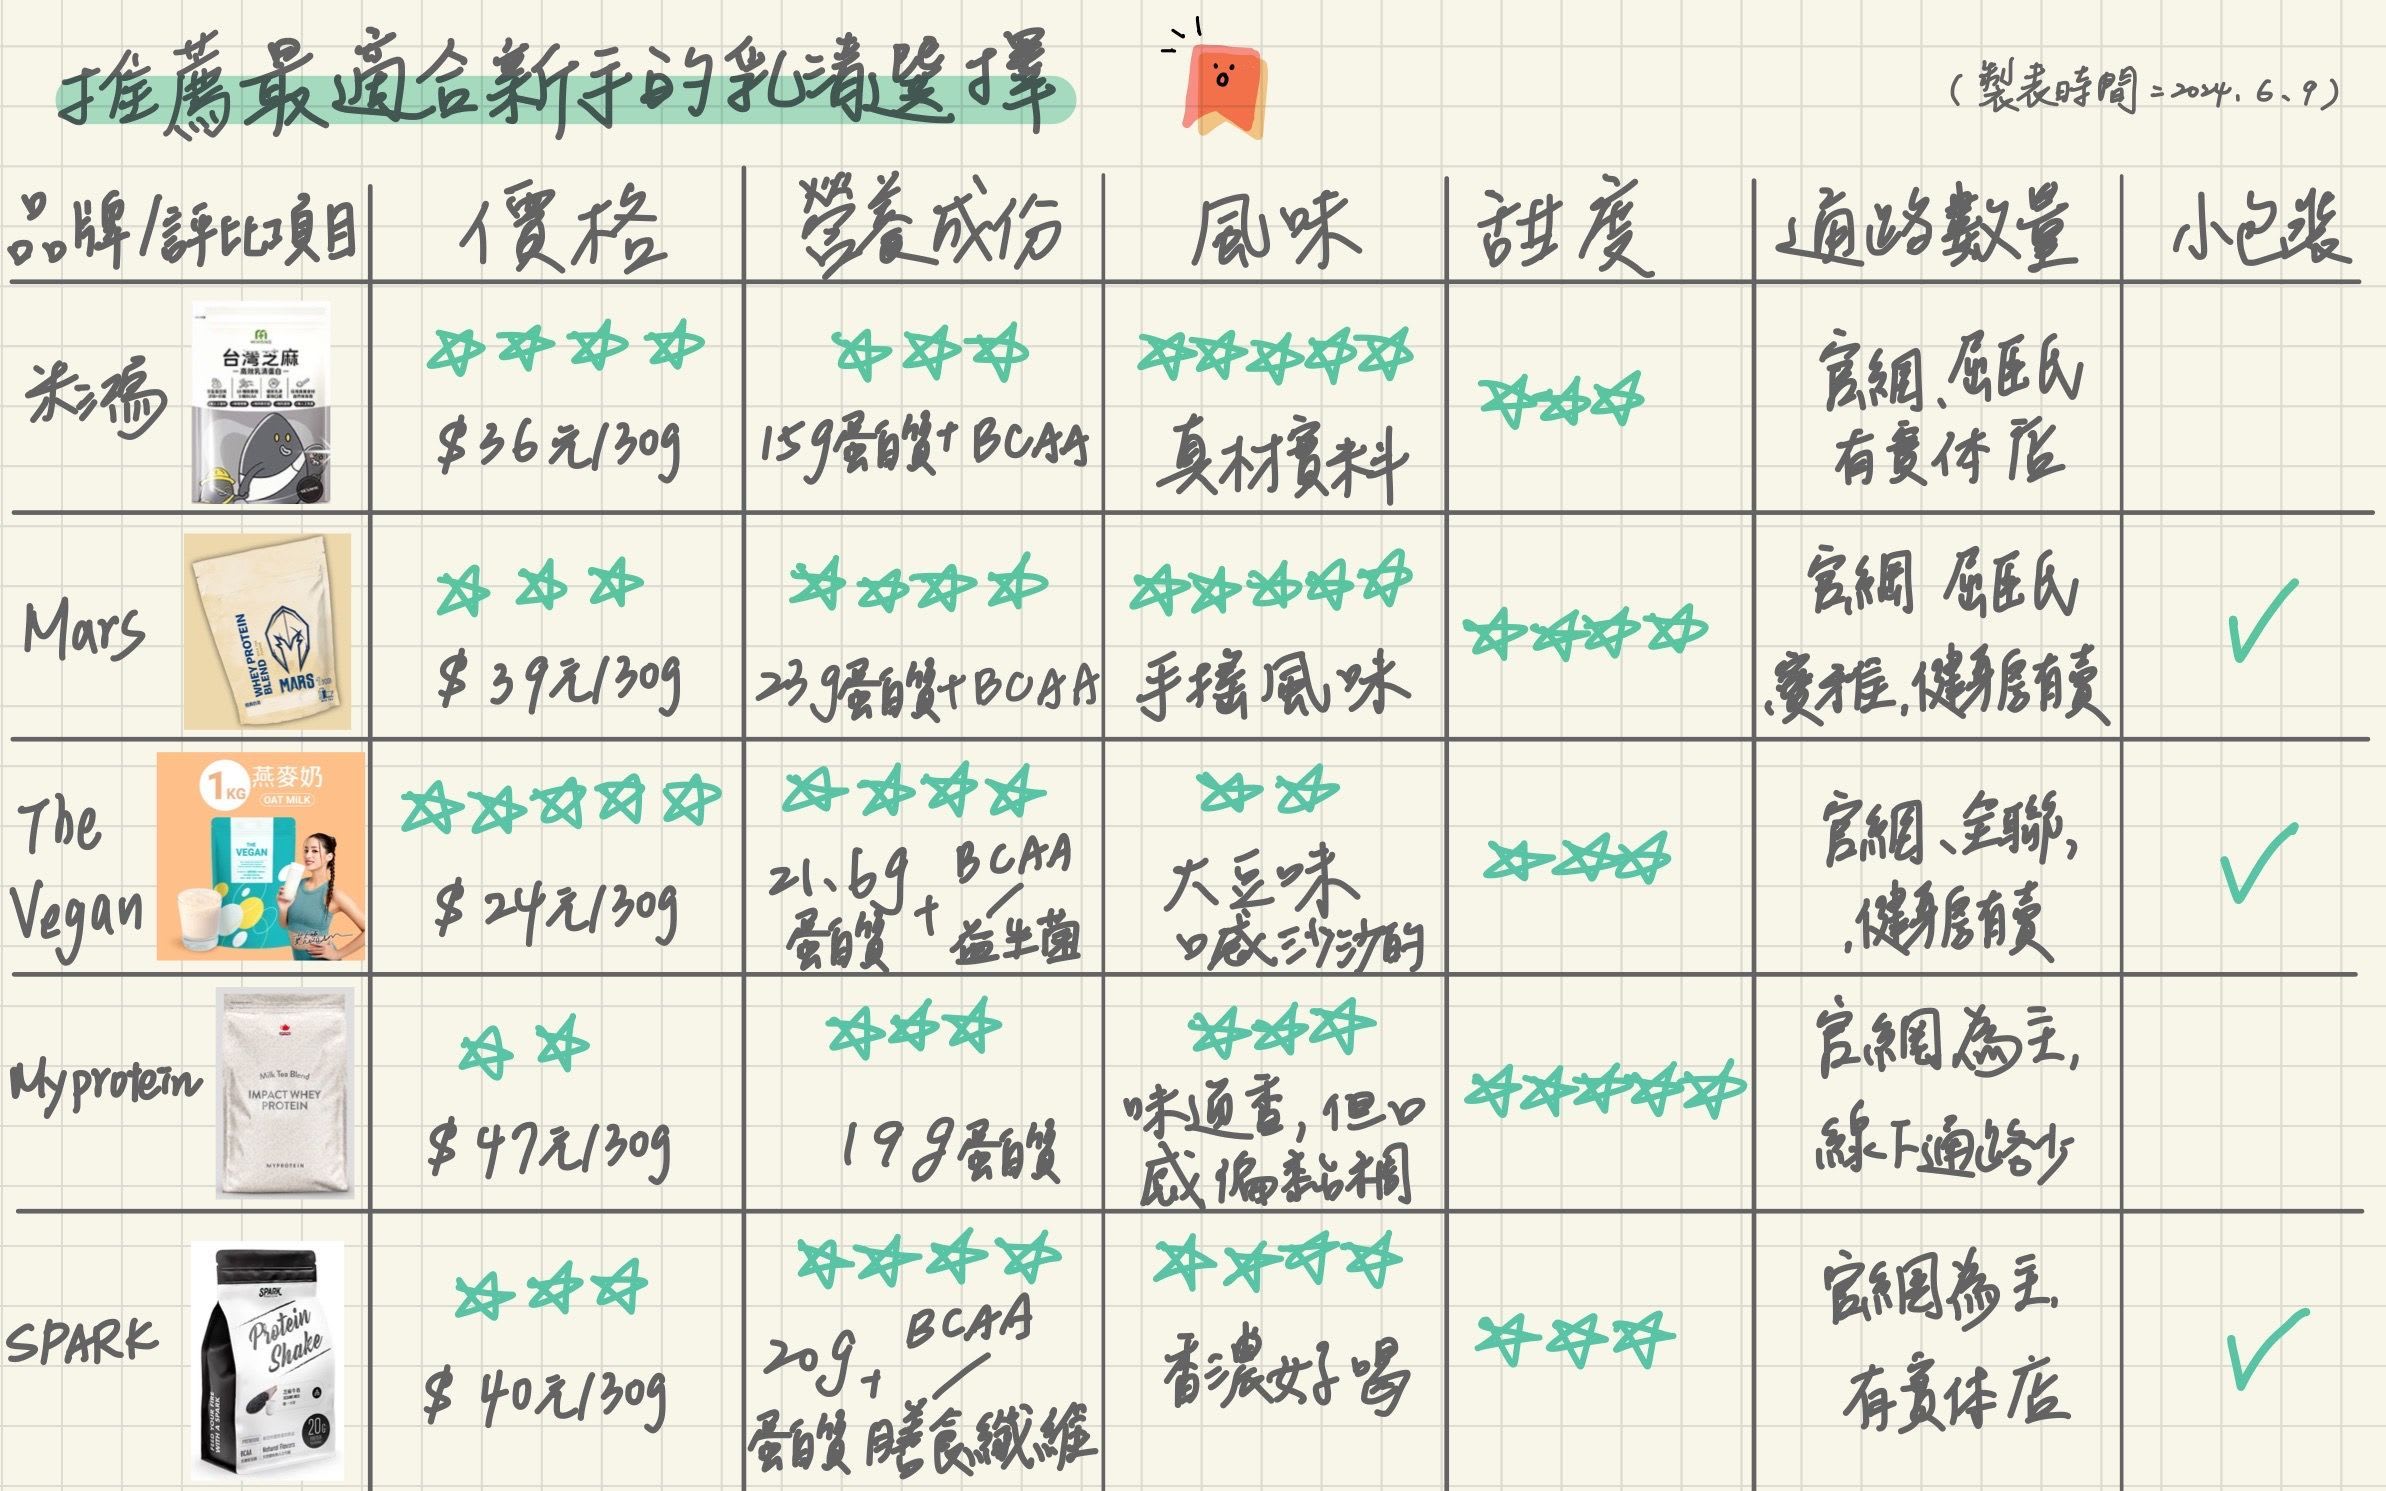 推薦最適合新手的乳清選擇
(製表時間=2024.6.9)
品牌/評比項目
價格
營養成份
風味
甜度
通路數量
小包裝
米鴻
台灣芝麻
高效乳清蛋白
$36元/30g
15g蛋白質+BCAA
真材實料
官網、屈臣氏
有實体店
Mars
WHEY PROTEIN
BLEND
MARS
$39元/30g
23g蛋白質+BCAA
手搖風味
官網 屈臣氏
寶雅,健身房有賣
The
Vegan
1KG
燕麥奶
OAT MILK
THE
VEGAN
$24元/30g
21.6g
蛋白質
+
BCAA
益生菌
大豆味
口感沙沙的
官網、全聯,
健身房有賣
Myprotein
Milk Tea Blend
IMPACT WHEY
PROTEIN
MYPROTEIN
$47元/30g
19g蛋白質
味道香,但口
感偏黏稠
官網為主,
線下通路少
SPARK
SPARK
Protein
Shake
20G
BCAA
Natural Flavors
FEED YOUR FIRE
WITH A SPARK
$40元/30g
20g+
BCAA
蛋白質 膳食纖維
香濃好喝
官網為主,
有實体店